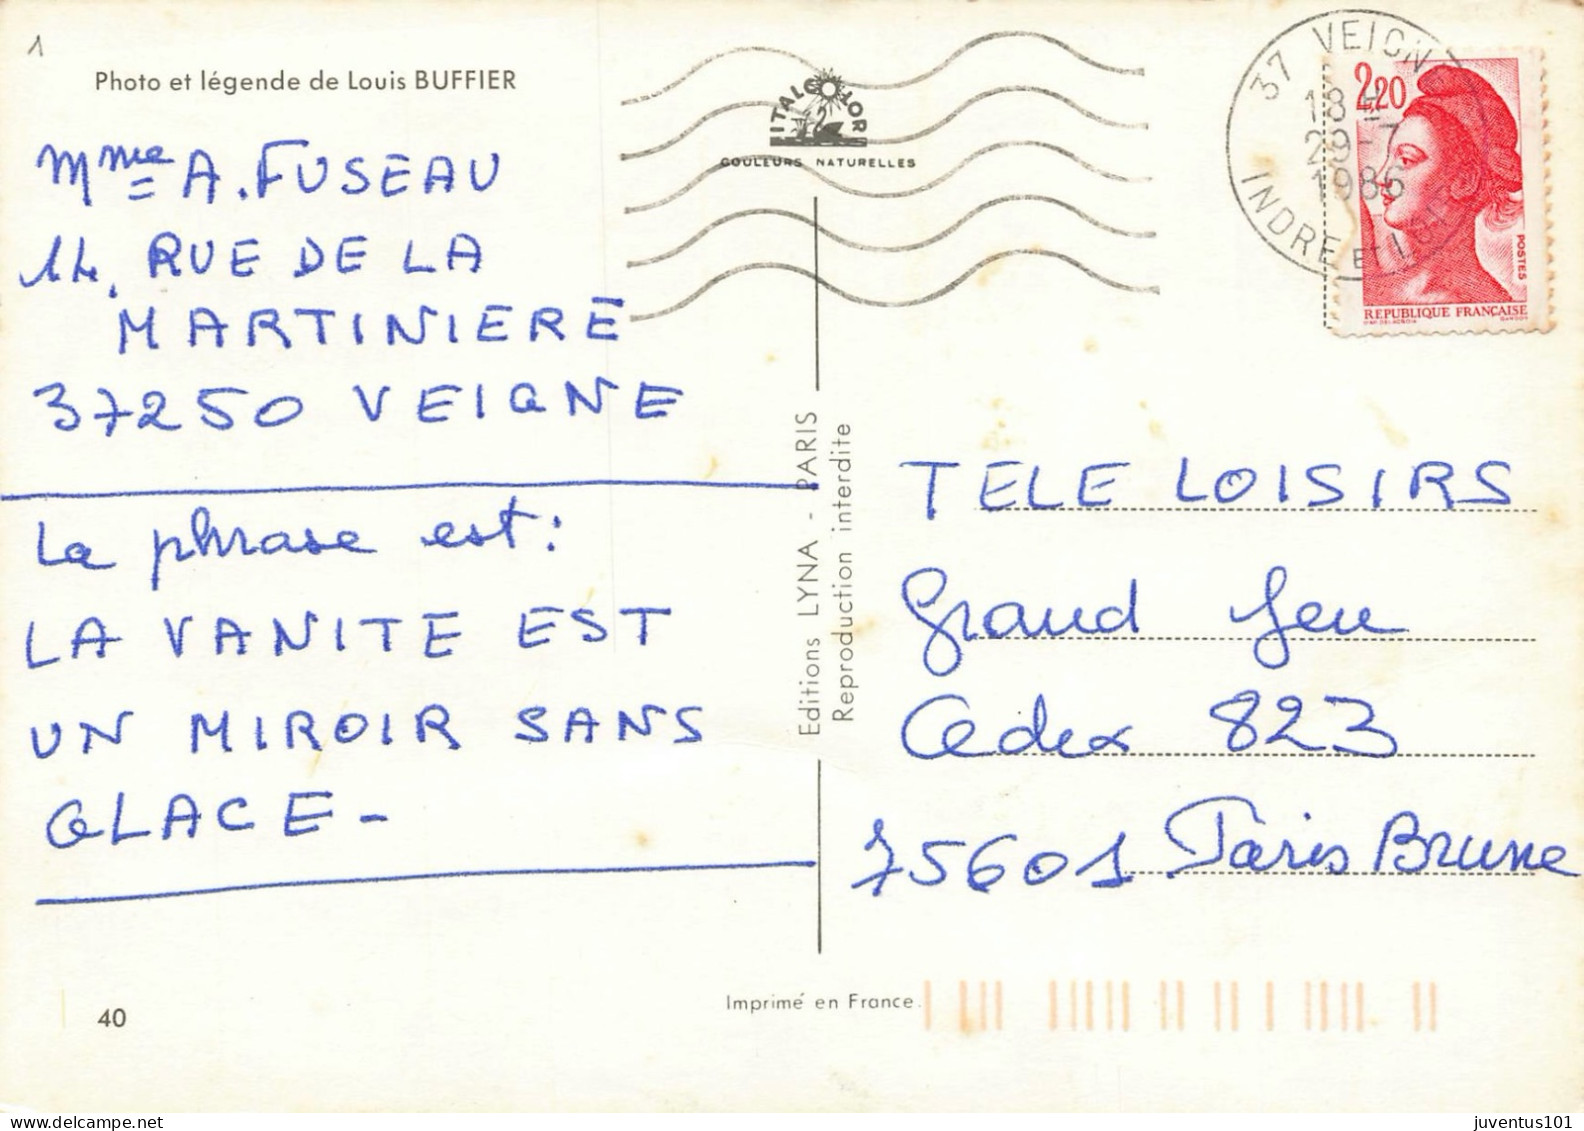 1
Photo et légende de Louis BUFFIER
Mme A. FUSEAU
14, RUE DE LA
MARTINIERE
37250 VEIGNE
La phrase est:
LA VANITE EST
UN MIROIR SANS
GLACE -
40
ITALCOLOR
COULEURS NATURELLES
Editions LYNA - PARIS
Reproduction interdite
Imprimé en France
37 VEIGN
18 H
29-7
1986
INDRE ET LOIRE
2,20
POSTES
REPUBLIQUE FRANÇAISE
TELE LOISIRS
Grand Jeu
Cedex 823
75601 Paris Brune
juventus101